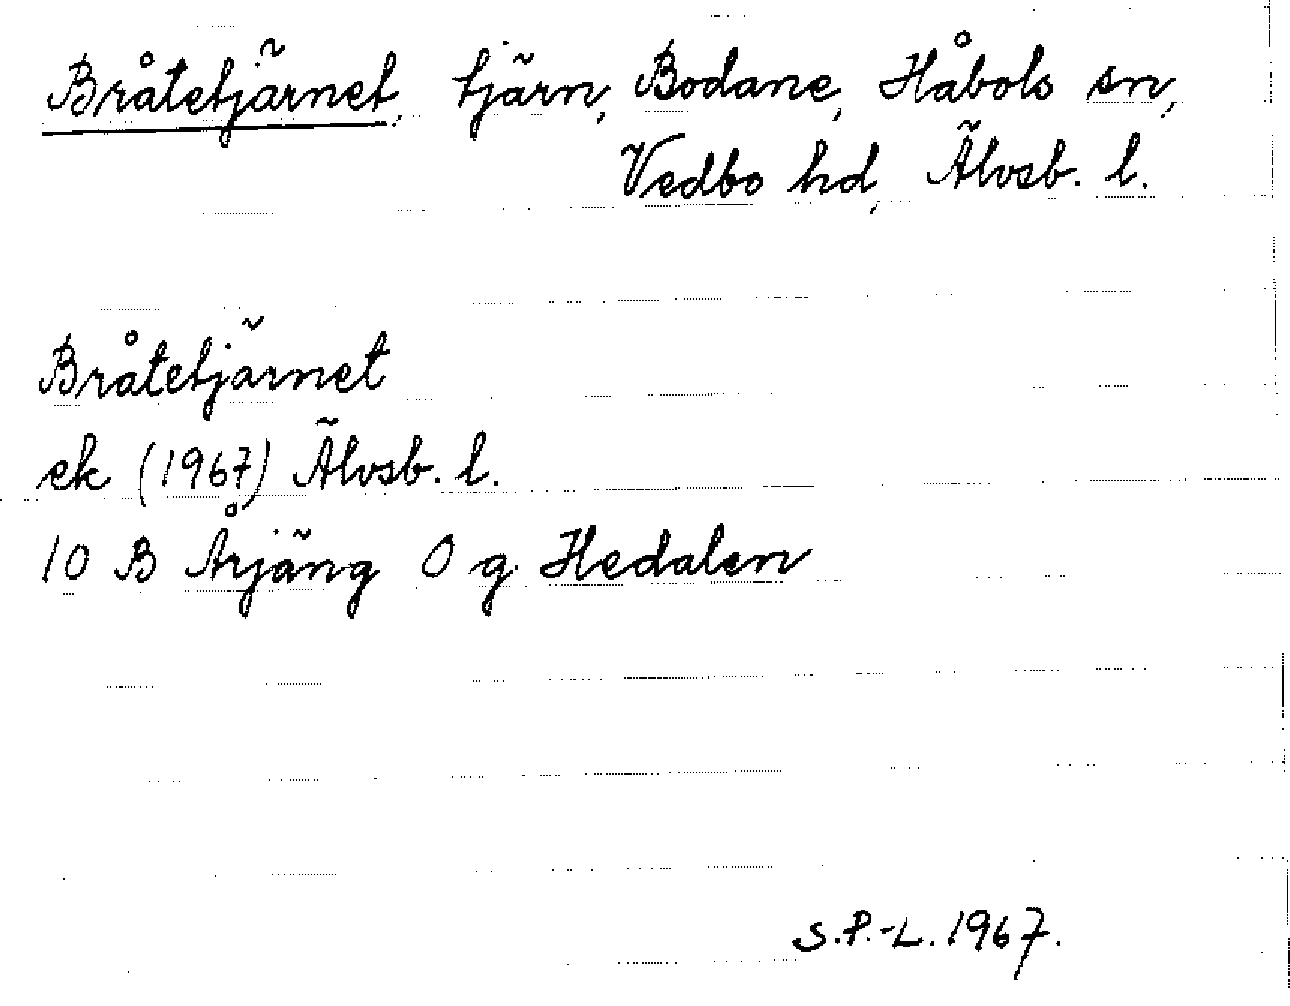 Bråtetjärnet, tjärn, Bodane, Håbols sn,
Vedbo hd, Älvsb. l.
Bråtetjärnet
ek (1967) Älvsb. l.
10 B Årjäng O g Hedalen
S.P.-L. 1967.